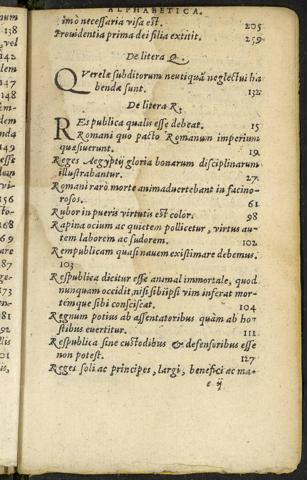 ALPHABETICA.
imò necessaria visa est. 205
Prouidentia prima dei filia extitit. 259
De litera Q.
Querelæ subditorum neutiquã neglectui ha
bendæ sunt. 132
De litera R.
Res publica qualis esse debeat. 15
Romani quo pacto Romanum imperium
quæsuerunt. 19.
Reges Aegyptij gloria bonarum disciplinarum
illustrabantur. 27.
Romani rarò morte animaduertebant in facino-
rosos. 61
Rubor in pueris virtutis est color. 98
Rapina ocium ac quietem pollicetur, virtus au-
tem laborem ac sudorem. 102
Rempublicam quasi nauem existimare debemus.
103
Respublica dicitur esse animal immortale, quod
nunquam occidit, nisi sibiipsi vim inferat mor-
témque sibi consciscat. 104
Regnum potius ab assentatoribus quàm ab ho-
stibus euertitur. 111
Respublica sine custodibus & defensoribus esse
non potest. 127
Reges soli ac principes, largi, benefici ac ma-
e ij
138
vel
142
147
148
149
144
esse
den
157
168
169
are
173
187
nos
201
ssi-
101